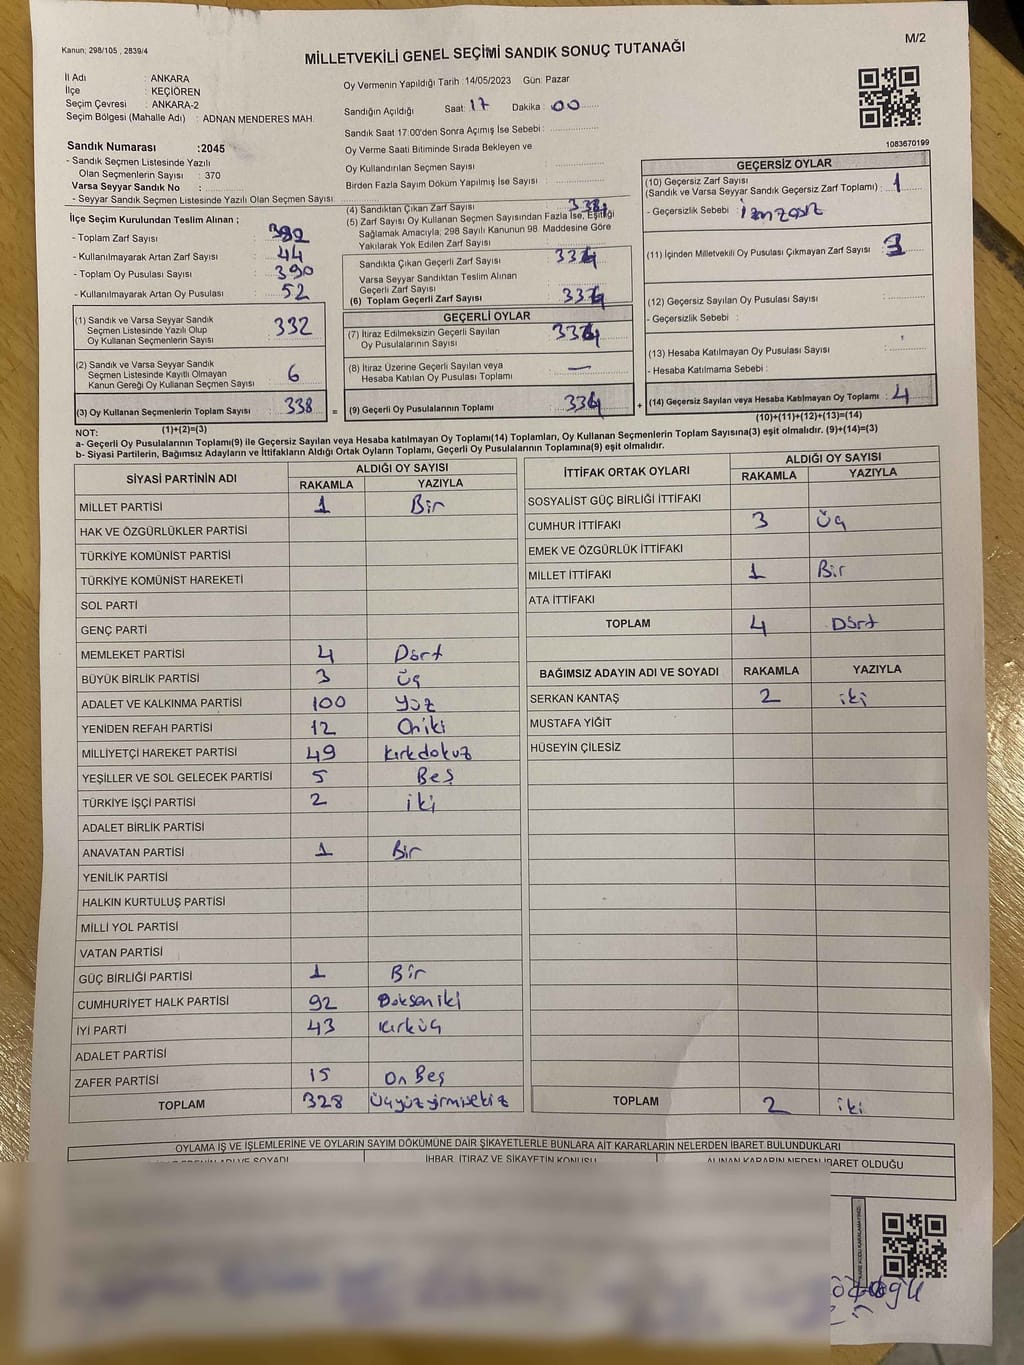 Kanun: 298/105 , 2839/4
MİLLETVEKİLİ GENEL SEÇİMİ SANDIK SONUÇ TUTANAĞI
M/2
İl Adı : ANKARA
İlçe : KEÇİÖREN
Seçim Çevresi : ANKARA-2
Seçim Bölgesi (Mahalle Adı) : ADNAN MENDERES MAH.
Oy Vermenin Yapıldığı Tarih : 14/05/2023 Gün: Pazar
Sandığın Açıldığı Saat: 17 Dakika : 00
Sandık Saat 17:00'den Sonra Açımış İse Sebebi :
Oy Verme Saati Bitiminde Sırada Bekleyen ve
Oy Kullandırılan Seçmen Sayısı :
Birden Fazla Sayım Döküm Yapılmış İse Sayısı :
1083670199
Sandık Numarası :2045
- Sandık Seçmen Listesinde Yazılı
Olan Seçmenlerin Sayısı : 370
Varsa Seyyar Sandık No :
- Seyyar Sandık Seçmen Listesinde Yazılı Olan Seçmen Sayısı :
İlçe Seçim Kurulundan Teslim Alınan ;
- Toplam Zarf Sayısı : 382
- Kullanılmayarak Artan Zarf Sayısı : 44
- Toplam Oy Pusulası Sayısı : 390
- Kullanılmayarak Artan Oy Pusulası : 52
(1) Sandık ve Varsa Seyyar Sandık
Seçmen Listesinde Yazılı Olup
Oy Kullanan Seçmenlerin Sayısı 332
(2) Sandık ve Varsa Seyyar Sandık
Seçmen Listesinde Kayıtlı Olmayan
Kanun Gereği Oy Kullanan Seçmen Sayısı 6
(3) Oy Kullanan Seçmenlerin Toplam Sayısı : 338
(1)+(2)=(3)
(4) Sandıktan Çıkan Zarf Sayısı : 338
(5) Zarf Sayısı Oy Kullanan Seçmen Sayısından Fazla İse, Eşitliği
Sağlamak Amacıyla; 298 Sayılı Kanunun 98. Maddesine Göre
Yakılarak Yok Edilen Zarf Sayısı :
Sandıkta Çıkan Geçerli Zarf Sayısı : 334
Varsa Seyyar Sandıktan Teslim Alınan
Geçerli Zarf Sayısı :
(6) Toplam Geçerli Zarf Sayısı : 334
GEÇERLİ OYLAR
(7) İtiraz Edilmeksizin Geçerli Sayılan
Oy Pusulalarının Sayısı : 334
(8) İtiraz Üzerine Geçerli Sayılan veya
Hesaba Katılan Oy Pusulası Toplamı : —
= (9) Geçerli Oy Pusulalarının Toplamı : 334 +
GEÇERSİZ OYLAR
(10) Geçersiz Zarf Sayısı
(Sandık ve Varsa Seyyar Sandık Geçersiz Zarf Toplamı) : 1
- Geçersizlik Sebebi : imzasız
(11) İçinden Milletvekili Oy Pusulası Çıkmayan Zarf Sayısı : 3
(12) Geçersiz Sayılan Oy Pusulası Sayısı :
- Geçersizlik Sebebi :
(13) Hesaba Katılmayan Oy Pusulası Sayısı :
- Hesaba Katılmama Sebebi :
(14) Geçersiz Sayılan veya Hesaba Katılmayan Oy Toplamı : 4
(10)+(11)+(12)+(13)=(14)
NOT:
a- Geçerli Oy Pusulalarının Toplamı(9) ile Geçersiz Sayılan veya Hesaba katılmayan Oy Toplamı(14) Toplamları, Oy Kullanan Seçmenlerin Toplam Sayısına(3) eşit olmalıdır. (9)+(14)=(3)
b- Siyasi Partilerin, Bağımsız Adayların ve İttifakların Aldığı Ortak Oyların Toplamı, Geçerli Oy Pusulalarının Toplamına(9) eşit olmalıdır.
SİYASİ PARTİNİN ADI ALDIĞI OY SAYISI
RAKAMLA YAZIYLA
MİLLET PARTİSİ 1 Bir
HAK VE ÖZGÜRLÜKLER PARTİSİ
TÜRKİYE KOMÜNİST PARTİSİ
TÜRKİYE KOMÜNİST HAREKETİ
SOL PARTİ
GENÇ PARTİ
MEMLEKET PARTİSİ 4 Dört
BÜYÜK BİRLİK PARTİSİ 3 Üç
ADALET VE KALKINMA PARTİSİ 100 Yüz
YENİDEN REFAH PARTİSİ 12 Oniki
MİLLİYETÇİ HAREKET PARTİSİ 49 Kırkdokuz
YEŞİLLER VE SOL GELECEK PARTİSİ 5 Beş
TÜRKİYE İŞÇİ PARTİSİ 2 iki
ADALET BİRLİK PARTİSİ
ANAVATAN PARTİSİ 1 Bir
YENİLİK PARTİSİ
HALKIN KURTULUŞ PARTİSİ
MİLLİ YOL PARTİSİ
VATAN PARTİSİ
GÜÇ BİRLİĞİ PARTİSİ 1 Bir
CUMHURİYET HALK PARTİSİ 92 Doksan iki
İYİ PARTİ 43 Kırküç
ADALET PARTİSİ
ZAFER PARTİSİ 15 On Beş
TOPLAM 328 Üçyüzyirmisekiz
İTTİFAK ORTAK OYLARI ALDIĞI OY SAYISI
RAKAMLA YAZIYLA
SOSYALİST GÜÇ BİRLİĞİ İTTİFAKI
CUMHUR İTTİFAKI 3 Üç
EMEK VE ÖZGÜRLÜK İTTİFAKI
MİLLET İTTİFAKI 1 Bir
ATA İTTİFAKI
TOPLAM 4 Dört
BAĞIMSIZ ADAYIN ADI VE SOYADI RAKAMLA YAZIYLA
SERKAN KANTAŞ 2 iki
MUSTAFA YİĞİT
HÜSEYİN ÇİLESİZ
TOPLAM 2 iki
OYLAMA İŞ VE İŞLEMLERİNE VE OYLARIN SAYIM DÖKÜMÜNE DAİR ŞİKAYETLERLE BUNLARA AİT KARARLARIN NELERDEN İBARET BULUNDUKLARI
ADI VE SOYADI İHBAR, İTİRAZ VE ŞİKAYETİN KONUSU ALINAN KARARIN NEDEN İBARET OLDUĞU